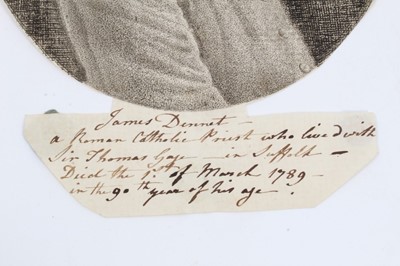 James Dennet —
a Roman Catholic Priest who lived with
Sir Thomas Gage — in Suffolk —
Died the 1st of March 1789 —
in the 90th year of his age .